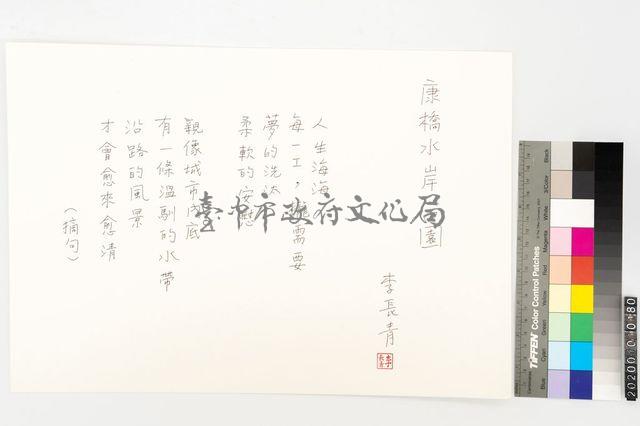 康橋水岸園
李長青
人生海海
每一工，需要
夢的洗汰
柔軟的安慰
親像城市內底
有一條溫馴的水帶
沿路的風景
才會愈來愈清
（摘句）
臺中市政府文化局
TIFFEN Color Control Patches
Blue
Cyan
Green
Yellow
Red
Magenta
White
3/Color
Black